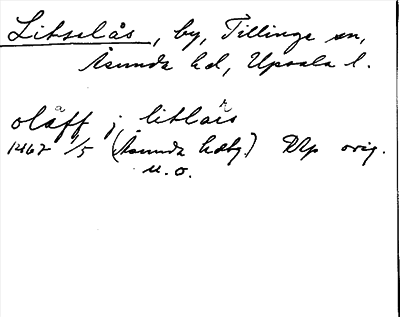 Litslås, by, Tillinge sn,
Åsunda hd, Uppsala l.
olåff j litlårs
1467 1/5 (Åsunda hdbg.) Dip orig.
m.o.